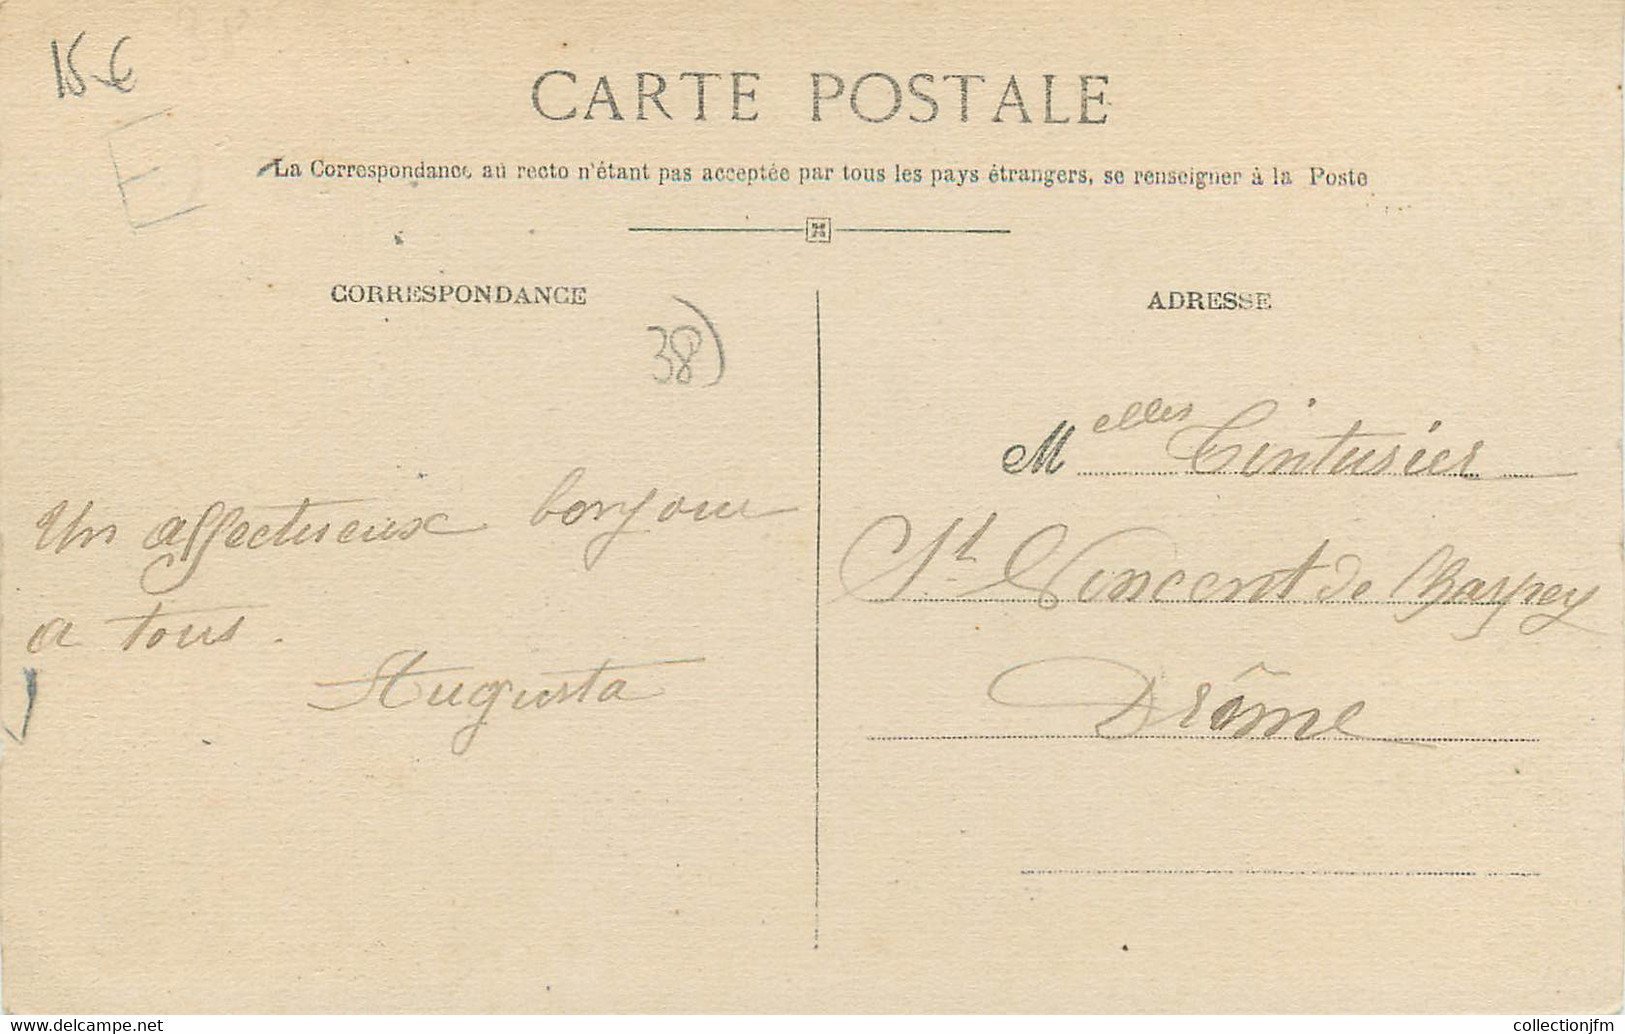 15 €
E
CARTE POSTALE
La Correspondance au recto n'étant pas acceptée par tous les pays étrangers, se renseigner à la Poste
CORRESPONDANCE
38)
Un affectueux bonjour
a tous.
Augusta
ADRESSE
Melles Tinturier
St Vincent de Charpey
Drôme
www.delcampe.net
collectionjfm